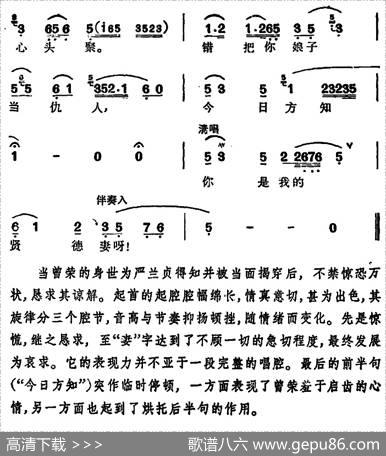 心头聚。 错把你娘子
当仇人, 今日方知
清唱
你是我的
伴奏入
贤德妻呀!
当曾荣的身世为严兰贞得知并被当面揭穿后，不禁惊恐万
状，恳求其谅解。起首的起腔腔幅绵长，情真意切，甚为出色，其
旋律分三个腔节，音高与节奏抑扬顿挫，随情绪而变化。先是惊
慌，继之恳求，至“妻”字达到了不顾一切的急切程度，最终发展
为哀求。它的表现力并不亚于一段完整的唱腔。最后的前半句
(“今日方知”)突作临时停顿，一方面表现了曾荣羞于启齿的心
情，另一方面也起到了烘托后半句的作用。
高清下载 >>> 歌谱八六 www.gepu86.com